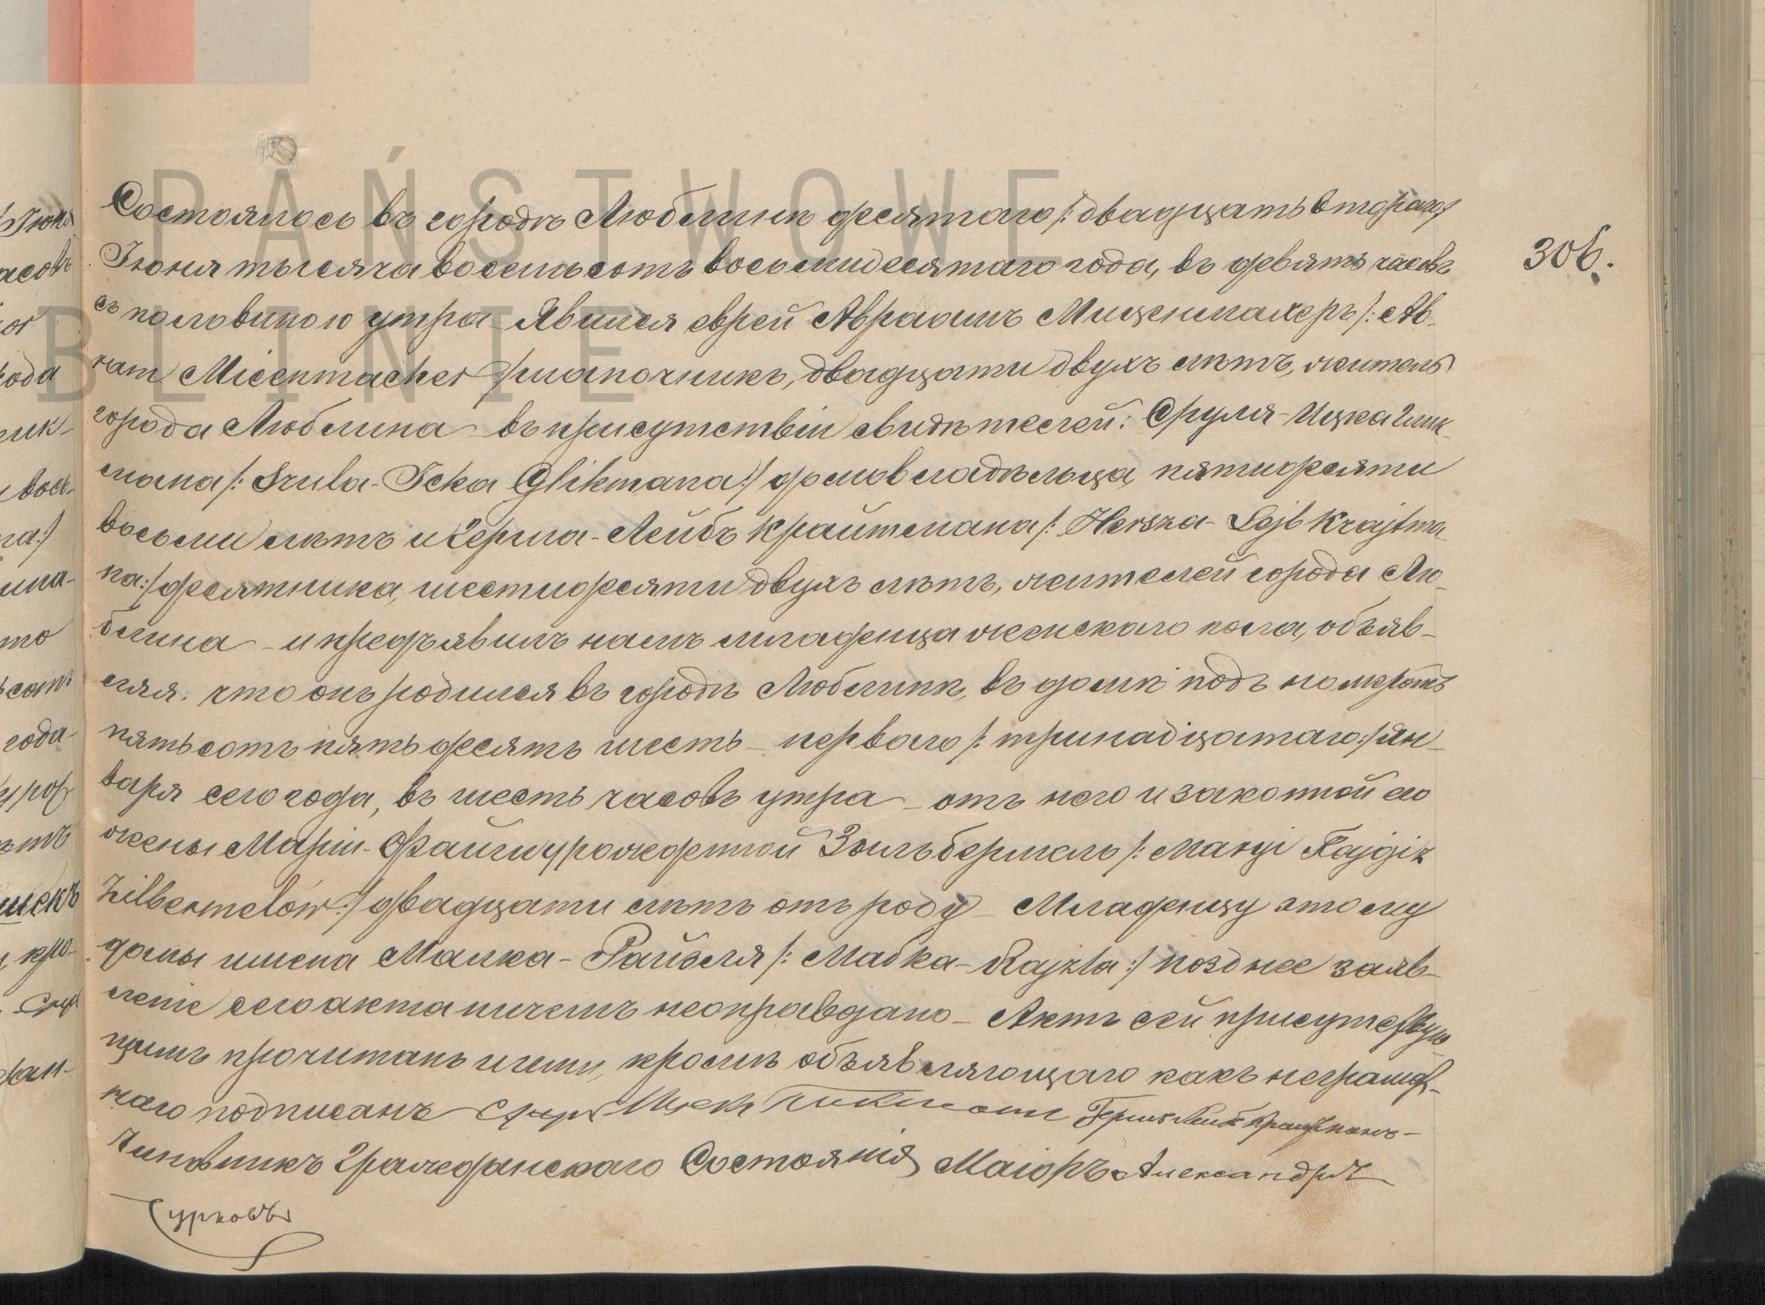 PAŃSTWOWE
BLINIE
306.
Состоялось въ городѣ Люблинѣ десятаго /: двадцать втораго/
Іюня тысяча восемьсотъ восьмидесятаго года, въ девять часовъ
съ половиною утра – Явился еврей Авраамъ Миценмахеръ /: Ab-
ram Micenmacher двадцати двухъ лѣтъ, житель
города Люблина – въ присутствіи свидѣтелей: Сруля-Ицка Глик-
мана /: Srula-Icka Glikmana :/ домовладѣльца, пятидесяти
восьми лѣтъ и Герша-Лейбъ Крайтмана /: Herszka-Lejb Krajtma-
na :/ десятника, шестидесяти двухъ лѣтъ, жителей города Лю-
блина – и предъявилъ намъ младенца женскаго пола, объяв-
ляя: что онъ родился въ городѣ Люблинѣ, въ домѣ подъ номеромъ
пятьсотъ пятьдесятъ шесть – перваго /: тринадцатаго :/ Ян-
варя сего года, въ шесть часовъ утра – отъ него и законной его
жены Маріи-Файги урожденной Зильбермель /: Maryi Fajgi z
Zilbermelów :/ двадцати лѣтъ отъ роду – Младенцу этому
даны имена Малка-Райзля /: Małka-Rajzla :/ позднее заяв-
леніе сего акта ничемъ неоправдано – Актъ сей присутствую-
щимъ прочитанъ и ими, кромѣ объявляющаго какъ неграмот-
наго подписанъ
Чиновникъ Гражданскаго Состоянія Маіоръ Александръ
Сурковъ